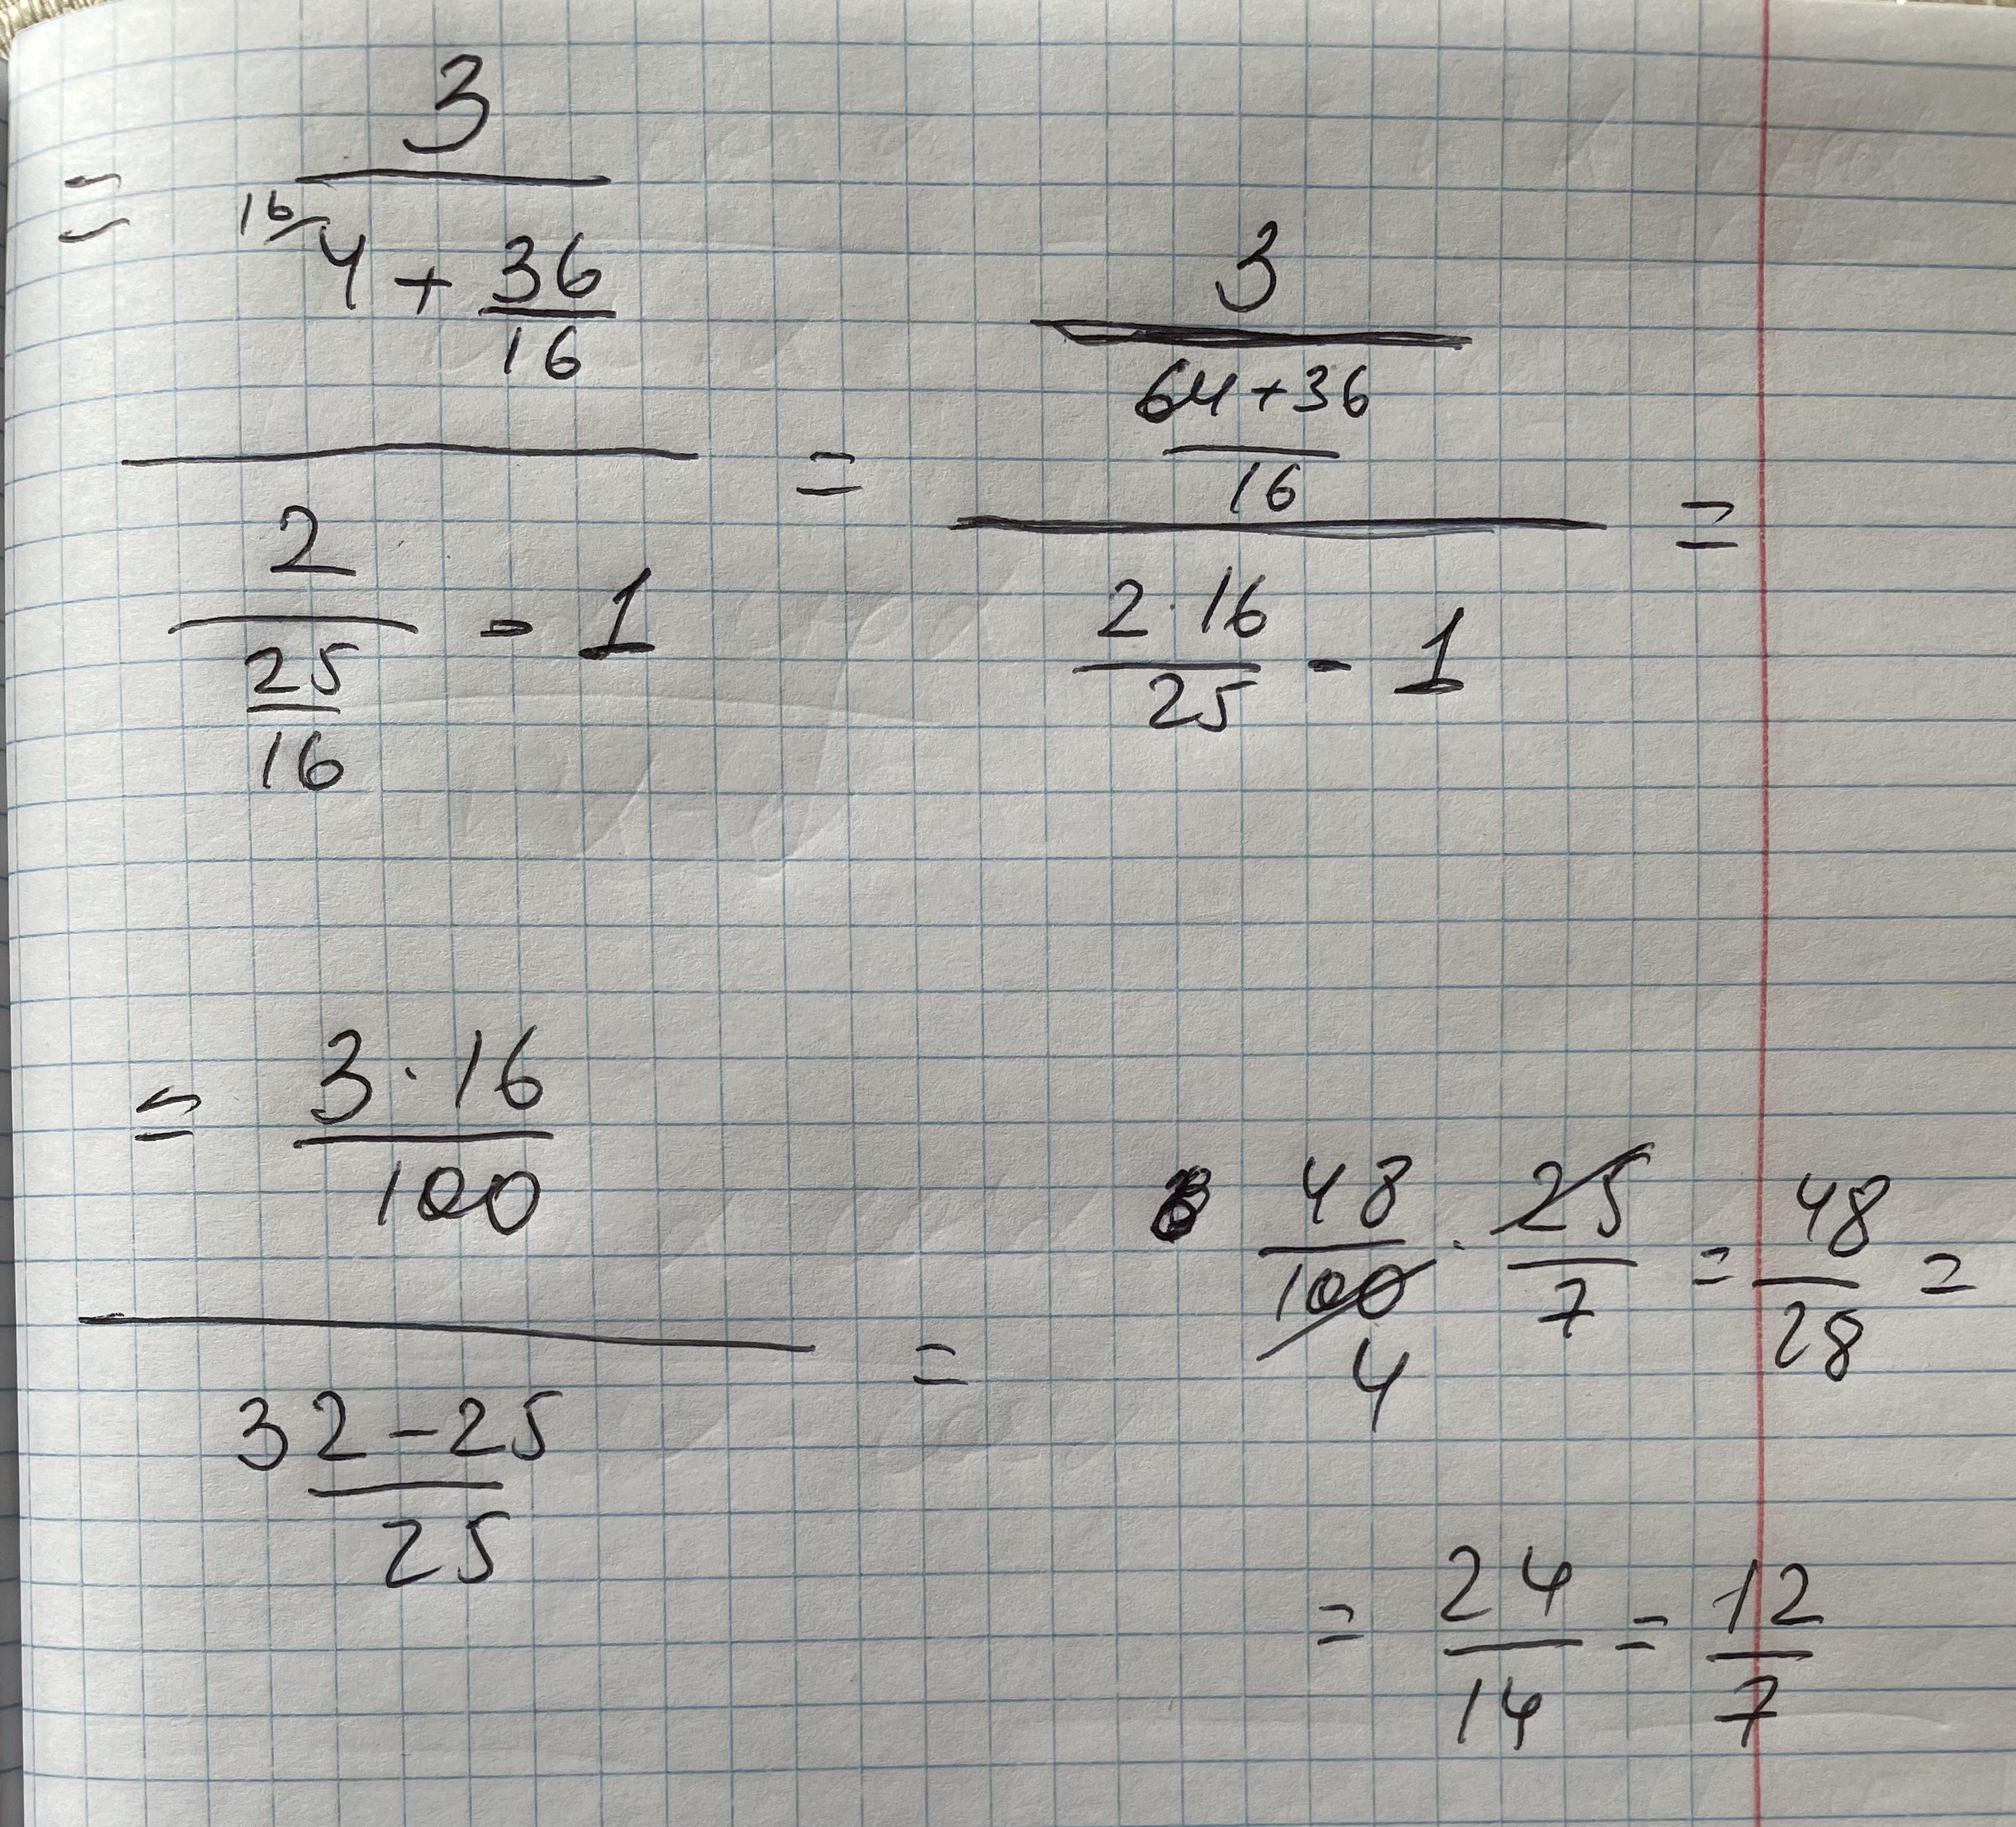 = 3 / (16/ 4 + 36/16) / (2 / (25/16) - 1) = 3 / ((64+36)/16) / ((2·16)/25 - 1) =
= (3·16)/100 / ((32-25)/25) = 48/100 · 25/7 = 48/28 =
4
= 24/14 = 12/7